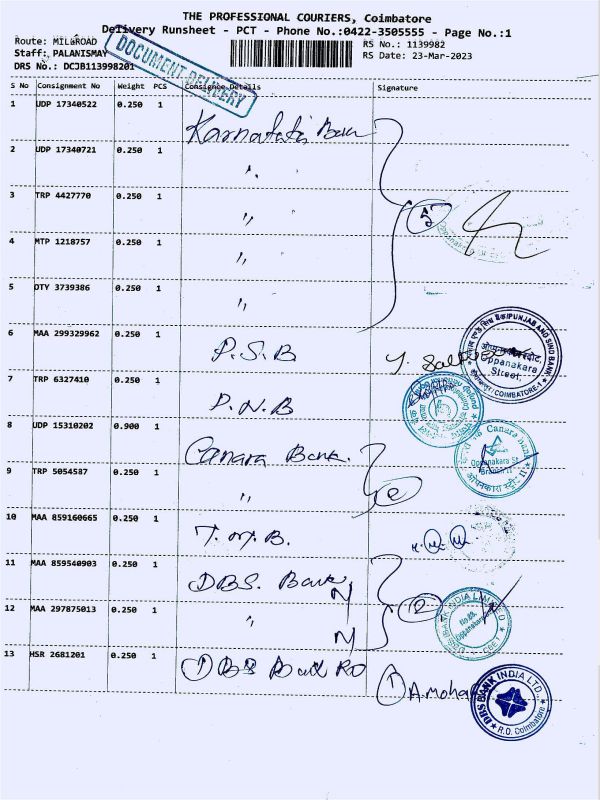 THE PROFESSIONAL COURIERS, Coimbatore
Delivery Runsheet - PCT - Phone No.:0422-3505555 - Page No.:1
Route: MILLROAD
RS No.: 1139982
Staff: PALANISMAY
RS Date: 23-Mar-2023
DRS No.: DCJB113998201
DOCUMENT DELIVERY
S No Consignment No Weight PCS Consignee Details Signature
1 UDP 17340522 0.250 1 Karnataka Bank
2 UDP 17340721 0.250 1 "
3 TRP 4427770 0.250 1 "
5
4 MTP 1218757 0.250 1 "
5 OTY 3739386 0.250 1 "
6 MAA 299329962 0.250 1 P.S.B
PUNJAB AND SIND BANK
Oppanakara
Street,
COIMBATORE-1
7 TRP 6327410 0.250 1 P.N.B
8 UDP 15310202 0.900 1 Canara Bank.
Canara Bank
Oppanakara St.
Branch II
9 TRP 5054587 0.250 1 "
2
10 MAA 859160665 0.250 1 T.M.B.
11 MAA 859540903 0.250 1 DBS. Bank
12 MAA 297875013 0.250 1 "
2
BANK INDIA LIMITED
13 HSR 2681201 0.250 1 DBS Bank RO
1 A.Mohan
DBS BANK INDIA LTD.,
R.O. Coimbatore